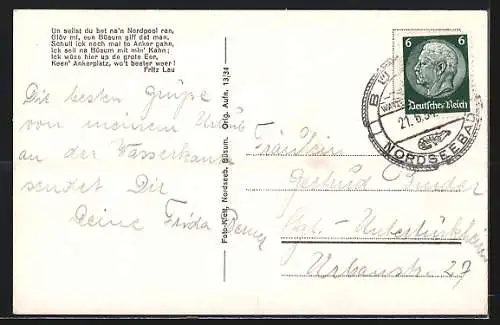 Un seilst du bet na'n Nordpool ran,
Glöv mi, een Büsum giff dat man.
Schull ick noch mal to Anker gahn,
Ick seil na Büsum mit min' Kahn;
Ick wüss hier up de grote Eer,
Keen' Ankerplatz, wo't beeter weer!
Fritz Lau
Die besten Grüße
von meinem Urlaub
an der Wasserkante
sendet Dir
Deine Frida
Foto-Kiest, Nordseeb. Büsum. Orig. Aufn. 13/34
6 6
Deutsches Reich
21. 6. 34
NORDSEEBAD
Fräulein
Gertrud
Stgt.-Untertürkheim
Urbanstr. 27